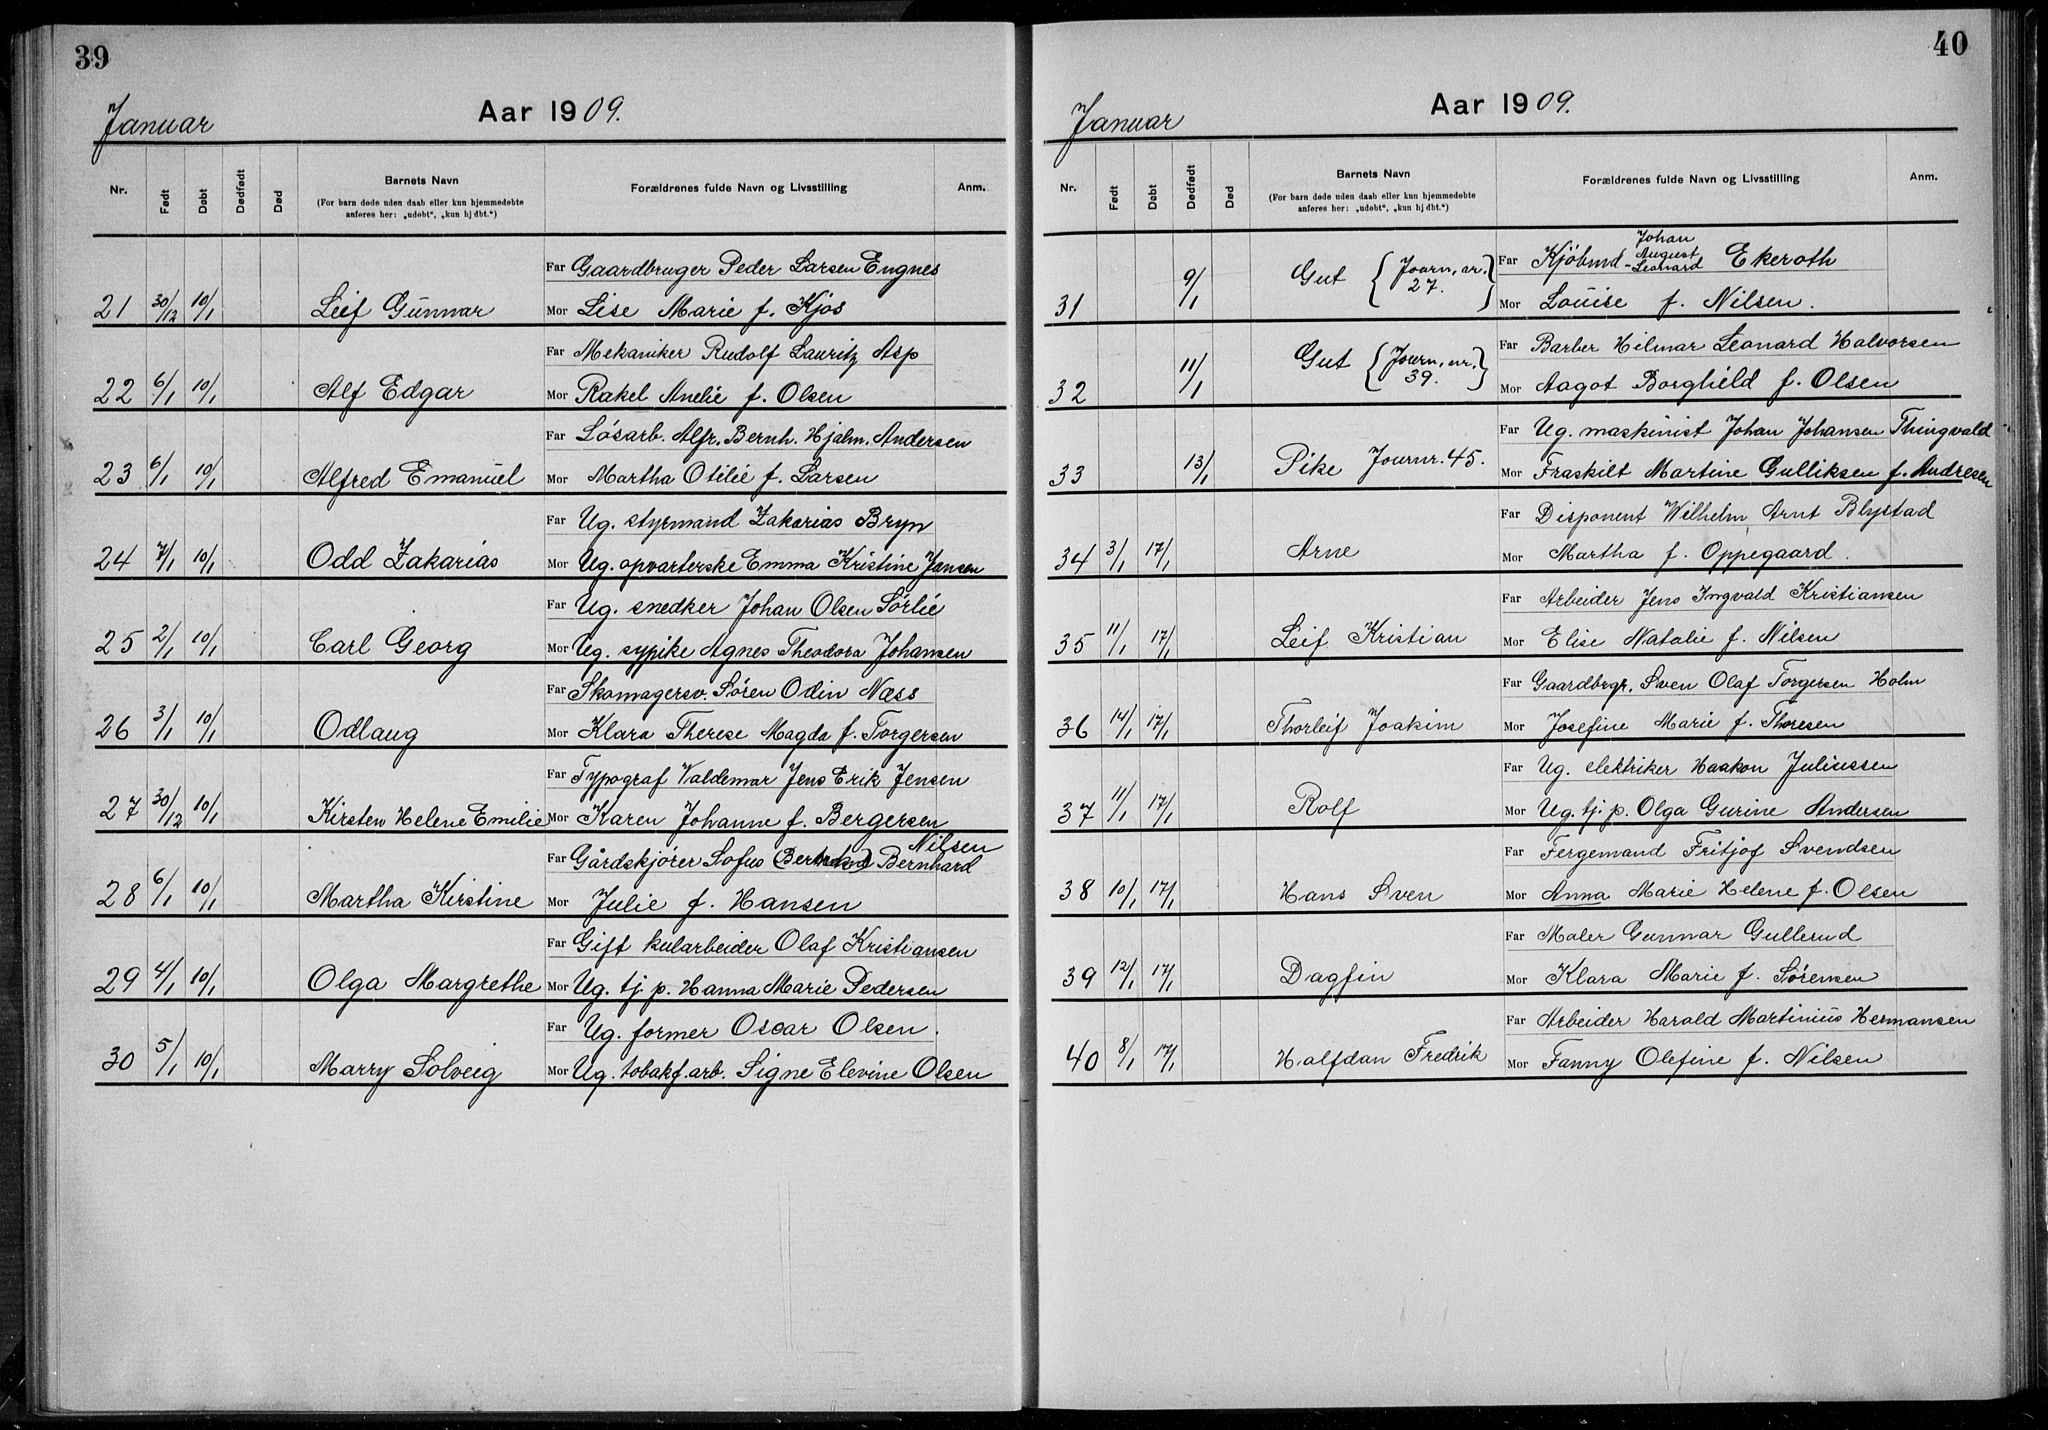 39
Januar Aar 1909.
Nr. Født Døbt Dødfødt Død Barnets Navn Forældrenes fulde Navn og Livsstilling Anm.
(For barn døde uden daab eller kun hjemmedøbte
anføres her: „udøbt“, „kun hj dbt.“)
Far Gaardbruger Peder Larsen Engnes
21 30/12 10/1 Leif Gunnar Mor Lise Marie f. Kjos
Far Mekaniker Rudolf Lauritz Asp
22 6/1 10/1 Alf Edgar Mor Rakel Anelie f. Olsen
Far Løsarb. Alfr. Bernh. Hjalm. Andersen
23 6/1 10/1 Alfred Emanuel Mor Martha Otilie f. Larsen
Far Ug. styrmand Zakarias Bryn
24 7/1 10/1 Odd Zakarias Mor Ug. opvarterske Emma Kristine Jansen
Far Ug. snedker Johan Olsen Sørlie
25 2/1 10/1 Carl Georg Mor Ug. sypike Agnes Theodora Johansen
Far Skomagersv. Søren Odin Næss
26 3/1 10/1 Odlaug Mor Klara Therese Magda f. Torgersen
Far Typograf Valdemar Jens Erik Jensen
27 30/12 10/1 Kirsten Helene Emilie Mor Karen Johanne f. Bergersen
Nilsen
Far Gårdskjører Sofus Bernhard
28 6/1 10/1 Martha Kirstine Mor Julie f. Hansen
Far Gift kularbeider Olaf Kristiansen
29 4/1 10/1 Olga Margrethe Mor Ug. tj. p. Hanna Marie Pedersen
Far Ug. former Oscar Olsen.
30 5/1 10/1 Marry Solveig Mor Ug. tobakf. arb. Signe Elevine Olsen
40
Januar Aar 1909.
Nr. Født Døbt Dødfødt Død Barnets Navn Forældrenes fulde Navn og Livsstilling Anm.
(For barn døde uden daab eller kun hjemmedøbte
anføres her: „udøbt“, „kun hj dbt.“)
Johan
August
Far Kjøbmd - Leonard Ekeroth
31 9/1 Gut {Journ. nr. 27.} Mor Louise f. Nilsen.
Far Barber Hilmar Leonard Halvorsen
32 11/1 Gut {Journ. nr. 39.} Mor Aagot Borghild f. Olsen
Far Ug. maskinist Johan Johansen Thingvald
33 13/1 Pike Journr. 45. Mor Fraskilt Martine Gulliksen f. Andresen
Far Disponent Wilhelm Arnt Blystad
34 3/1 17/1 Arne Mor Martha f. Oppegaard.
Far Arbeider Jens Ingvald Kristiansen
35 11/1 17/1 Leif Kristian Mor Elise Natalie f. Nilsen
Far Gaardbrgr. Sven Olaf Torgersen Holm
36 14/1 17/1 Thorleif Joakim Mor Josefine Marie f. Thoresen
Far Ug. elektriker Haakon Juliussen
37 11/1 17/1 Rolf Mor Ug. tj. p. Olga Gurine Andersen
Far Fergemand Fritjof Svendsen
38 10/1 17/1 Hans Sven Mor Anna Marie Helene f. Olsen
Far Maler Gunnar Gullerud
39 12/1 17/1 Dagfin Mor Klara Marie f. Sørensen
Far Arbeider Harald Martinius Hermansen
40 8/1 17/1 Halfdan Fredrik Mor Fanny Olefine f. Nilsen